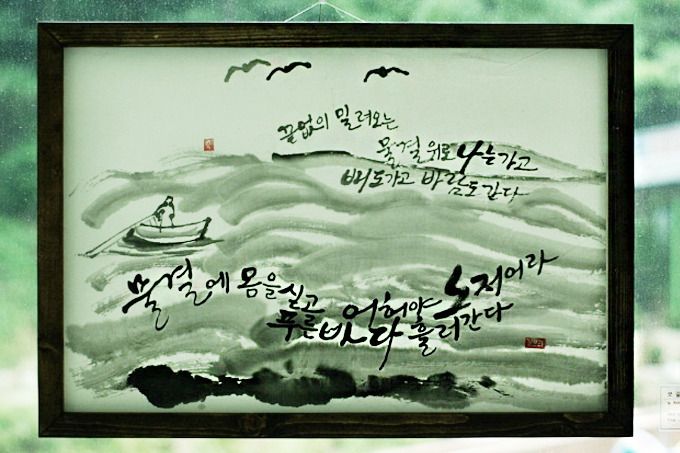 끝없의 밀려오는
물결위로 나는가고
배도가고 바람도간다
물결에 몸을실고 어허야 노저어라
푸른바다 흘러간다